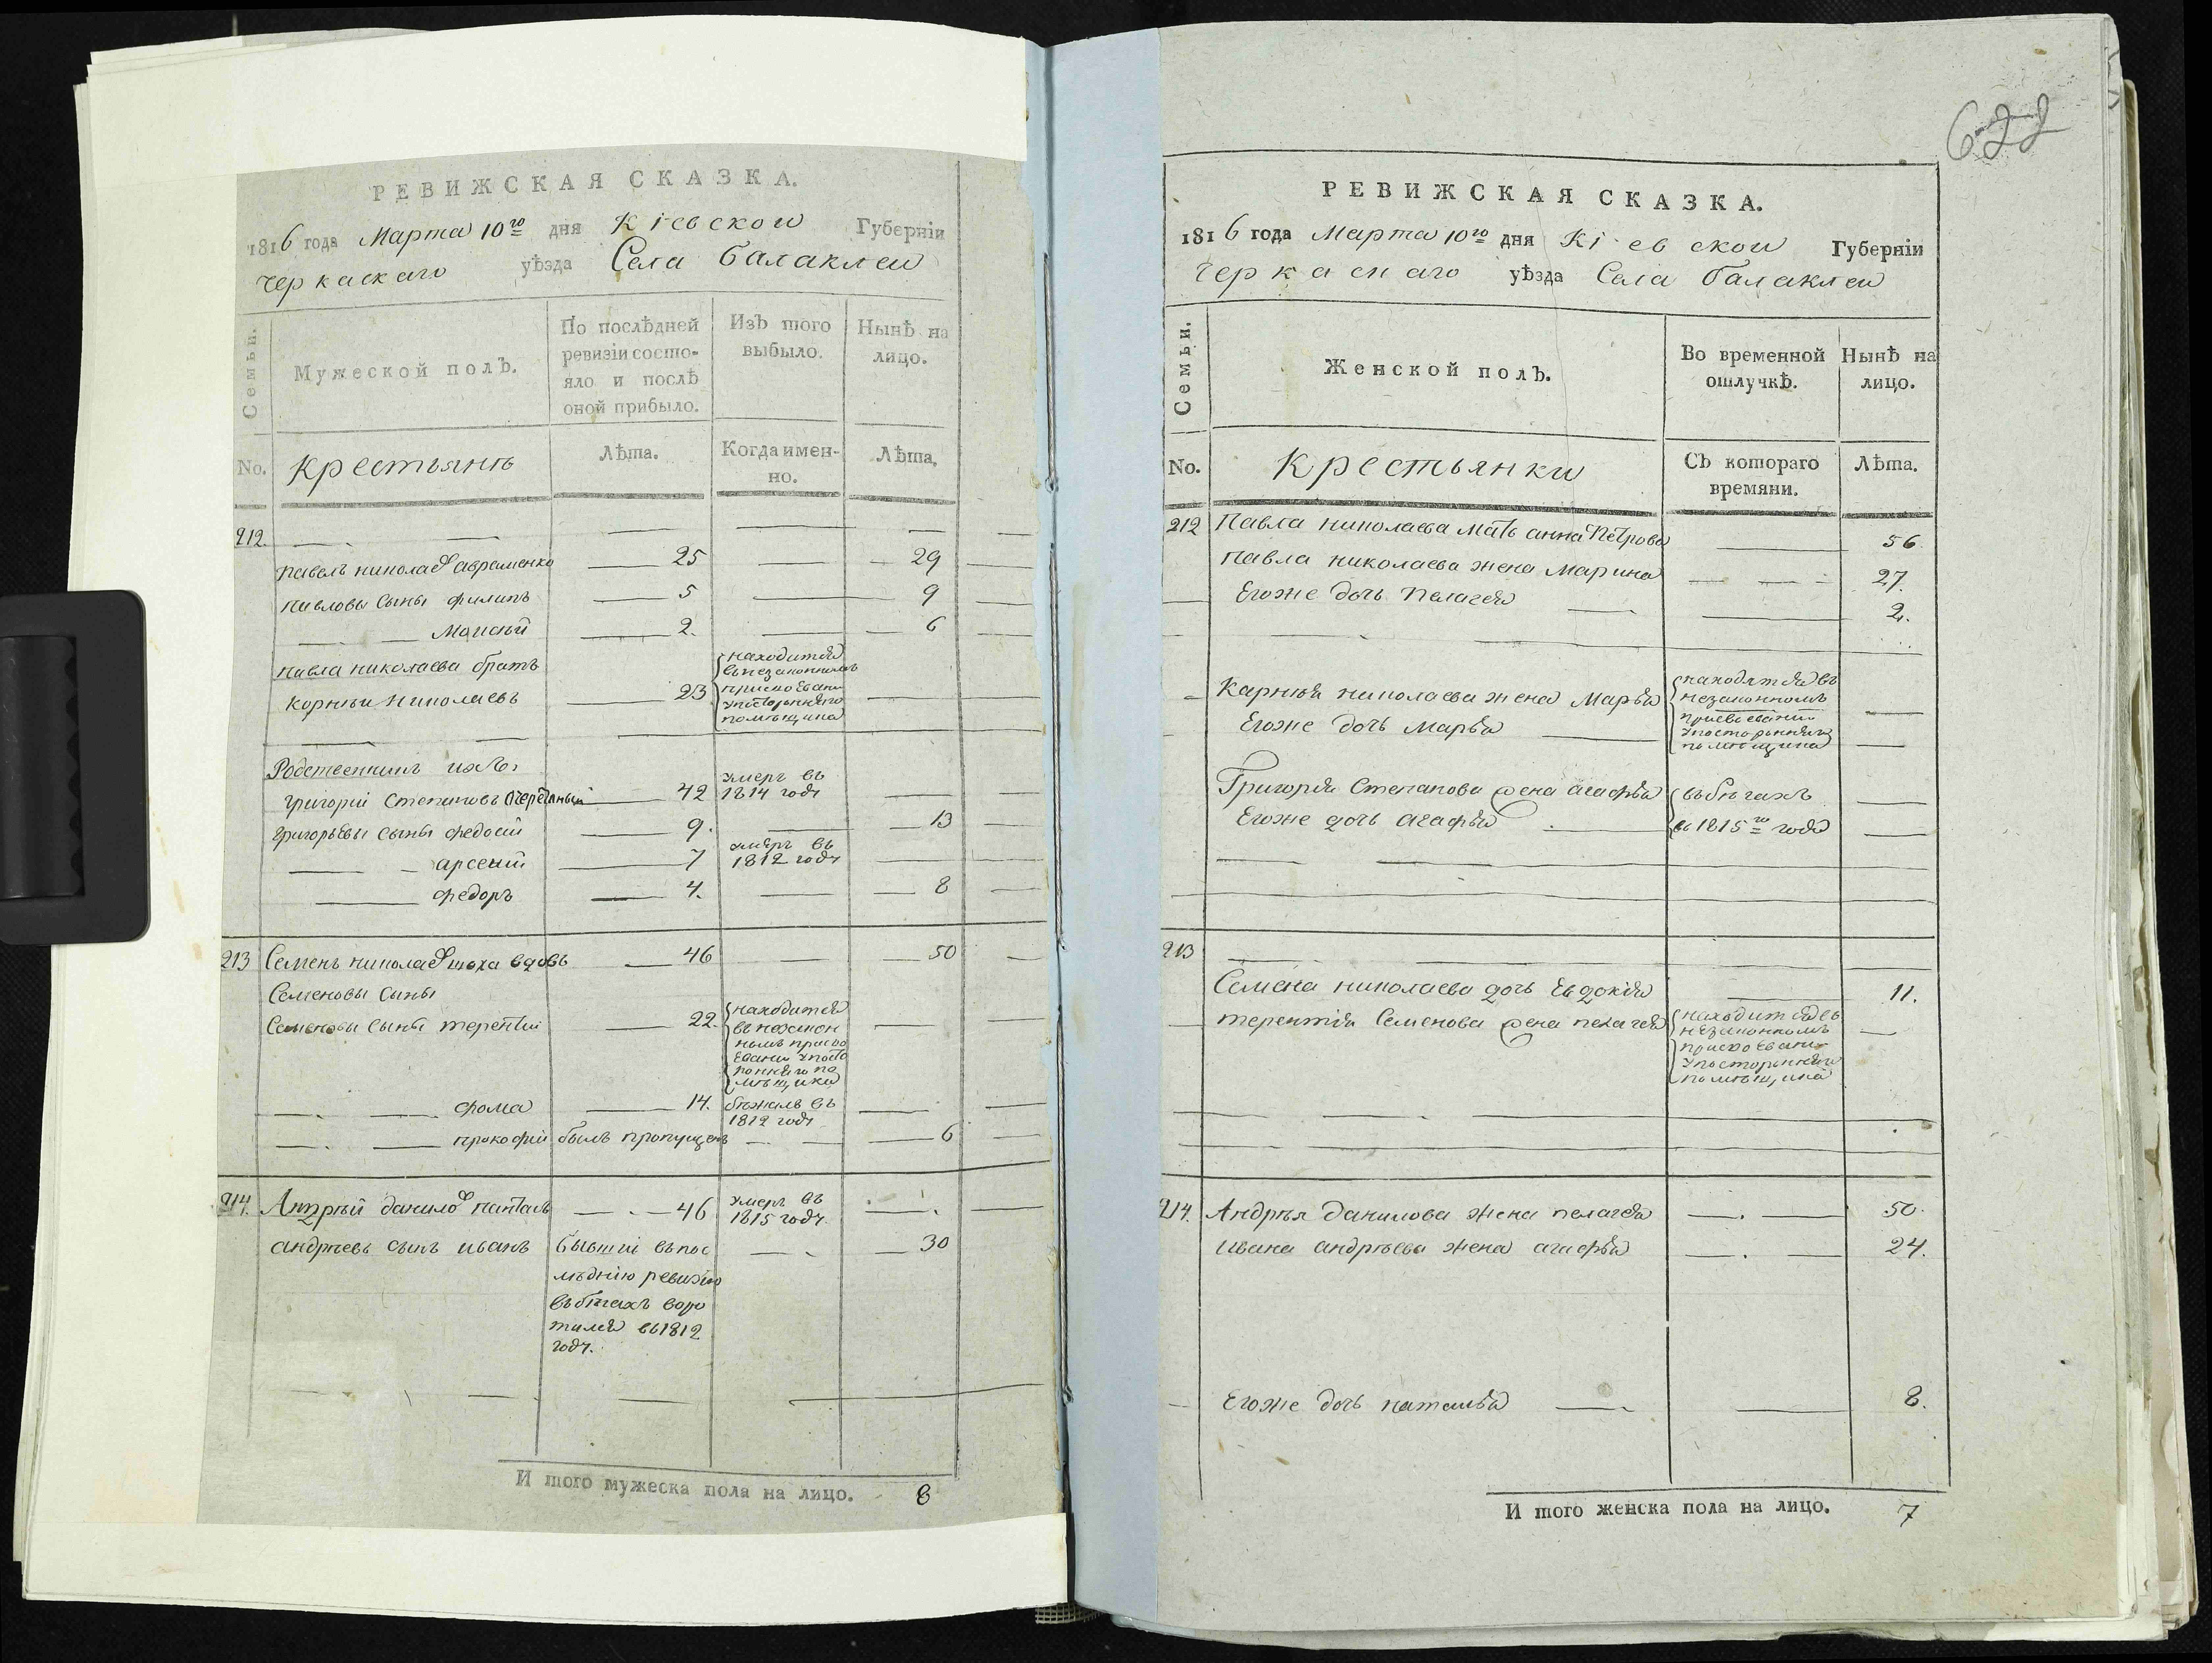 РЕВИЖСКАЯ СКАЗКА.
1816 года Марта 10го дня Кіевской Губерніи
Черкаскаго уѣзда Села Балаклеи
Семьи.
Мужеской полЪ.
По послѣдней ревизіи состо-
яло и послѣ
оной прибыло.
ИзЪ того
выбыло.
Нынѣ на
лицо.
No.
Крестьянъ
Лѣта.
Когда имен-
но.
Лѣта.
212.
Павелъ николаевъ авраменко 25 29
павловы сыны филипъ 5 9
Моисей 2. 6
павла николаева братъ
корнѣи николаевъ 23 находится въ незаконномъ присвоеваніи у посторонняго помѣщика
Родственникъ ихъ
григорій степановъ очеретяный 42 умеръ въ 1814 году
григорьевы сыны федосій 9. 13
арсеній 7 умеръ въ 1812 году
федоръ 4. 8
213 Семенъ николаевъ шоха вдовъ 46 50
Семеновы сыны
Семеновы сыны терентій 22. находится
въ незакон
номъ присво
еваніи у посто
ронняго по
мѣщика
фома 14. бѣжалъ въ
1812 году
прокофій былъ пропущенъ 6
214. Андрѣй данило панталъ 46 умеръ въ
1815 году.
андрѣевъ сынъ иванъ бывшій въ пос 30
лѣднію ревизію
въ бѣгахъ воро
тился въ 1812
году.
И того мужеска пола на лицо. 8
622
РЕВИЖСКАЯ СКАЗКА.
1816 года Марта 10го дня Кіевской Губерніи
Черкаскаго уѣзда Села Балаклеи
Семьи.
Женской полЪ.
Во временной
отлучкѣ.
Нынѣ на
лицо.
No.
Крестьянки
СЪ котораго
времяни.
Лѣта.
212 Павла николаева мать анна Петрова 56
павла николаева жена Марина 27.
Егоже дочь Пелагея 2.
Карнѣя николаева жена Марья находятся въ
незаконномъ
присвоеваніи
Егоже дочь Марья у посторонняго
помѣщика
Григорія Степанова жена агафья въ бѣгахъ
Егоже дочь агафья съ 1815го года
213
Семена николаева дочь Евдокія 11.
терентія Семенова жена пелагея находится въ
незаконномъ
присвоеваніи
у посторонняго
помѣщика
214. Андрѣя данилова жена пелагея 50.
ивана андрѣева жена агафья 24.
Егоже дочь наталья 8.
И того женска пола на лицо. 7